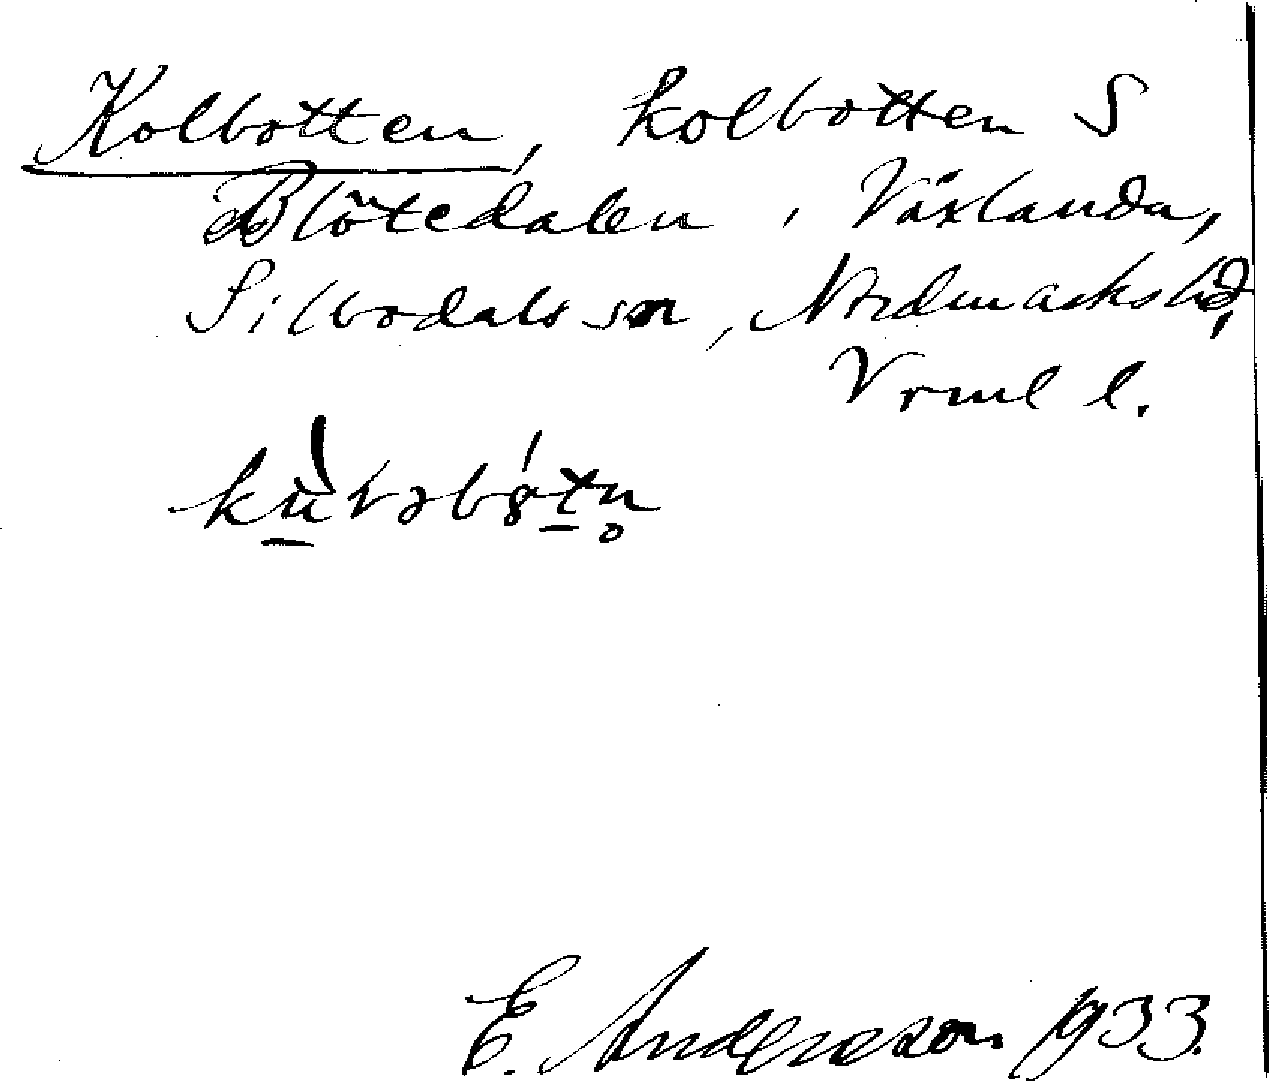 Kolbotten, kolbotten S
Blötedalen, Växlanda,
Silbodals sn, Nordmarks hd,
Vrml l.
E. Andersson 1933.